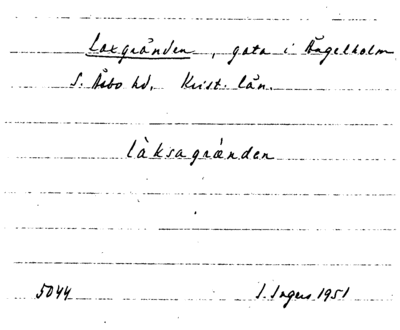 Laxgränden, gata i Ängelholm
S. Åsbo hd. Krist. län.
làksagrǽnden
5044 I. Ingers 1951